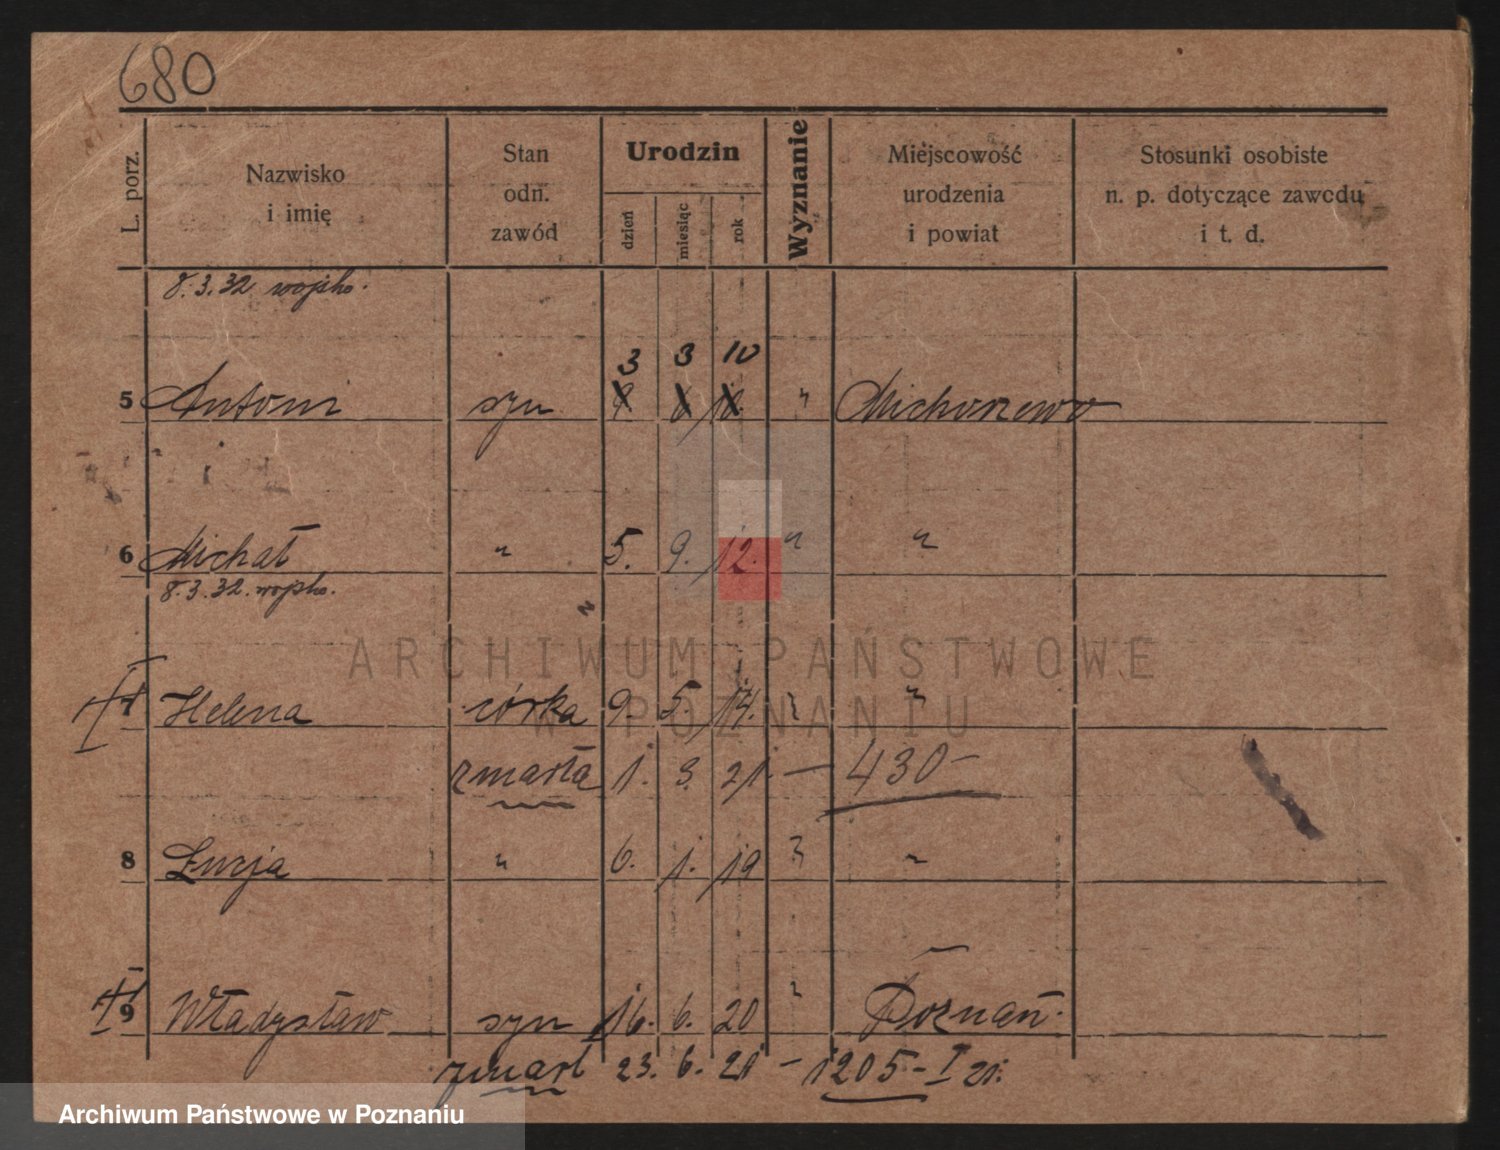 680
L. porz.
Nazwisko
i imię
Stan
odn.
zawód
Urodzin
dzień
miesiąc
rok
Wyznanie
Miejscowość
urodzenia
i powiat
Stosunki osobiste
n. p. dotyczące zawodu
i t. d.
8.3.32
3 3 10
5 Antoni syn " Michorzewo
6 Michał " 5. 9. 12. " "
8.3.32.
7 Helena córka 9. 5. 14. " "
zmarła 1. 3. 21. — 430 —
8 Łucja " 6. 1. 19 " "
9 Władysław syn 16. 6. 20 " Poznań.
zmarł 23. 6. 21 – 1205 – I 21.
ARCHIWUM PAŃSTWOWE
W POZNANIU
Archiwum Państwowe w Poznaniu